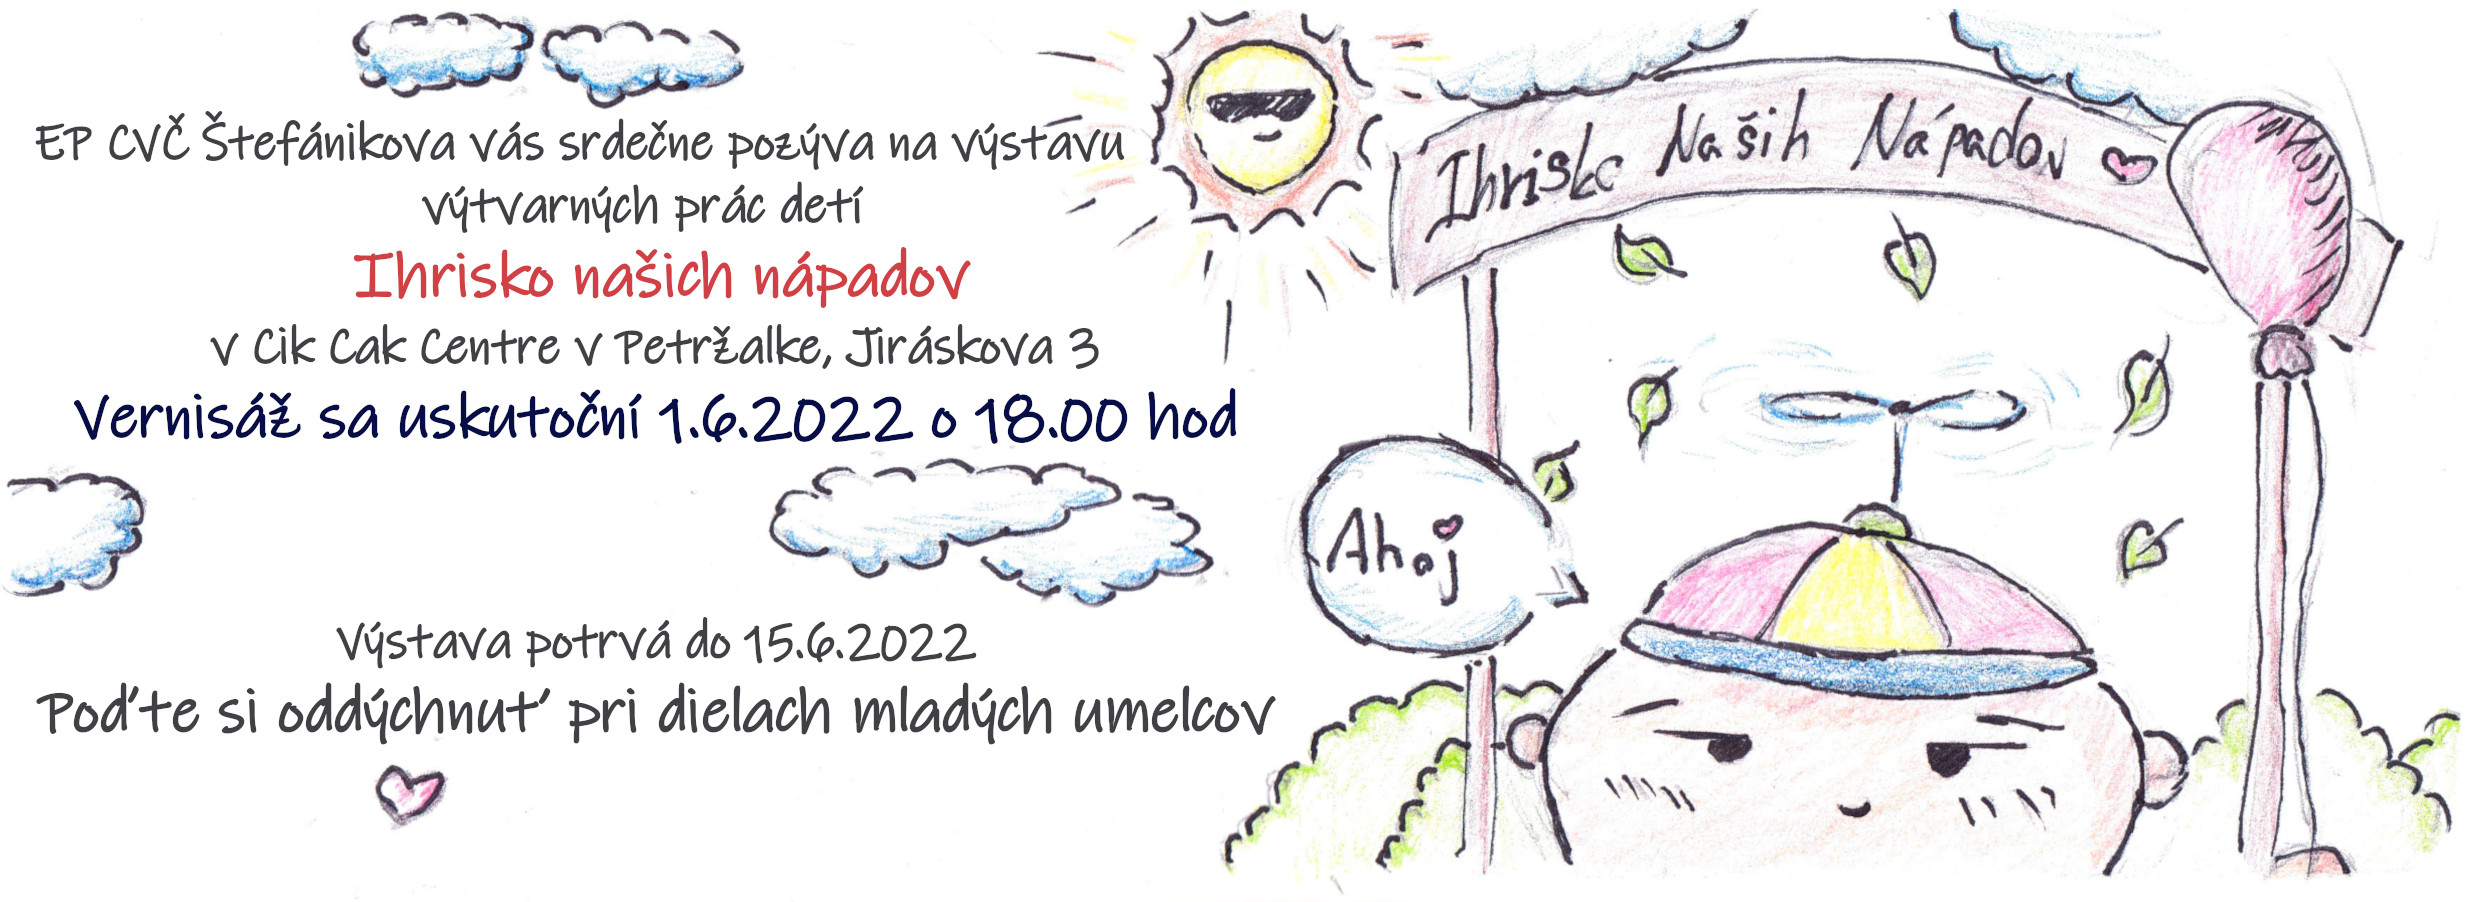 EP CVČ Štefánikova vás srdečne pozýva na výstavu
výtvarných prác detí
Ihrisko našich nápadov
v Cik Cak Centre v Petržalke, Jiráskova 3
Vernisáž sa uskutoční 1.6.2022 o 18.00 hod
Výstava potrvá do 15.6.2022
Poďte si oddýchnuť pri dielach mladých umelcov
Ihrisko Naših Nápadov
Ahoj